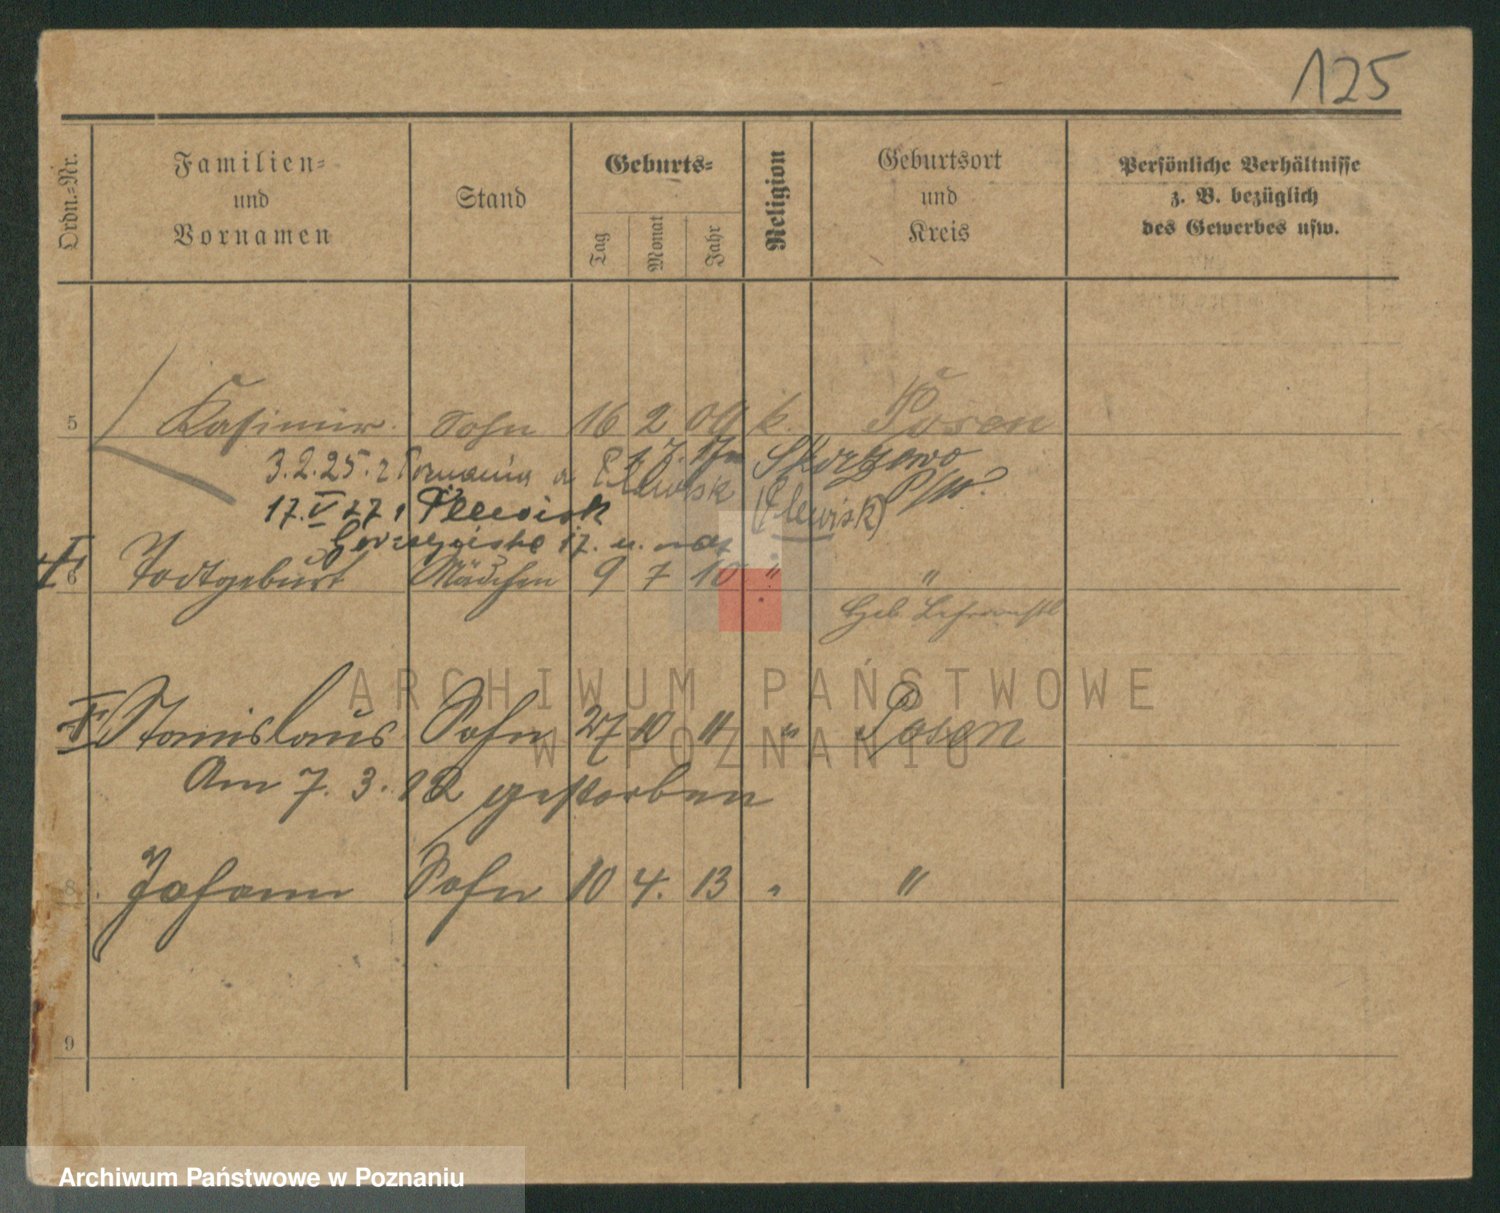 125
Ordn.-Nr.
Familien-
und
Vornamen
Stand
Geburts-
Tag
Monat
Jahr
Religion
Geburtsort
und
Kreis
Persönliche Verhältnisse
z. B. bezüglich
des Gewerbes usw.
5 Kasimir. Sohn 16 2 09 k. Posen
3.2.25. z Poznania Skórzewo
17.V 27 Plewisk (Plewisk)
17.
6 Todtgeburt Mädchen 9 7 10 " "
Geb.
Stanislaus Sohn 27 10 " " Posen
Am 7. 3. 12 gestorben
8 Johann Sohn 10 4. 13 " "
9
ARCHIWUM PAŃSTWOWE
W POZNANIU
Archiwum Państwowe w Poznaniu